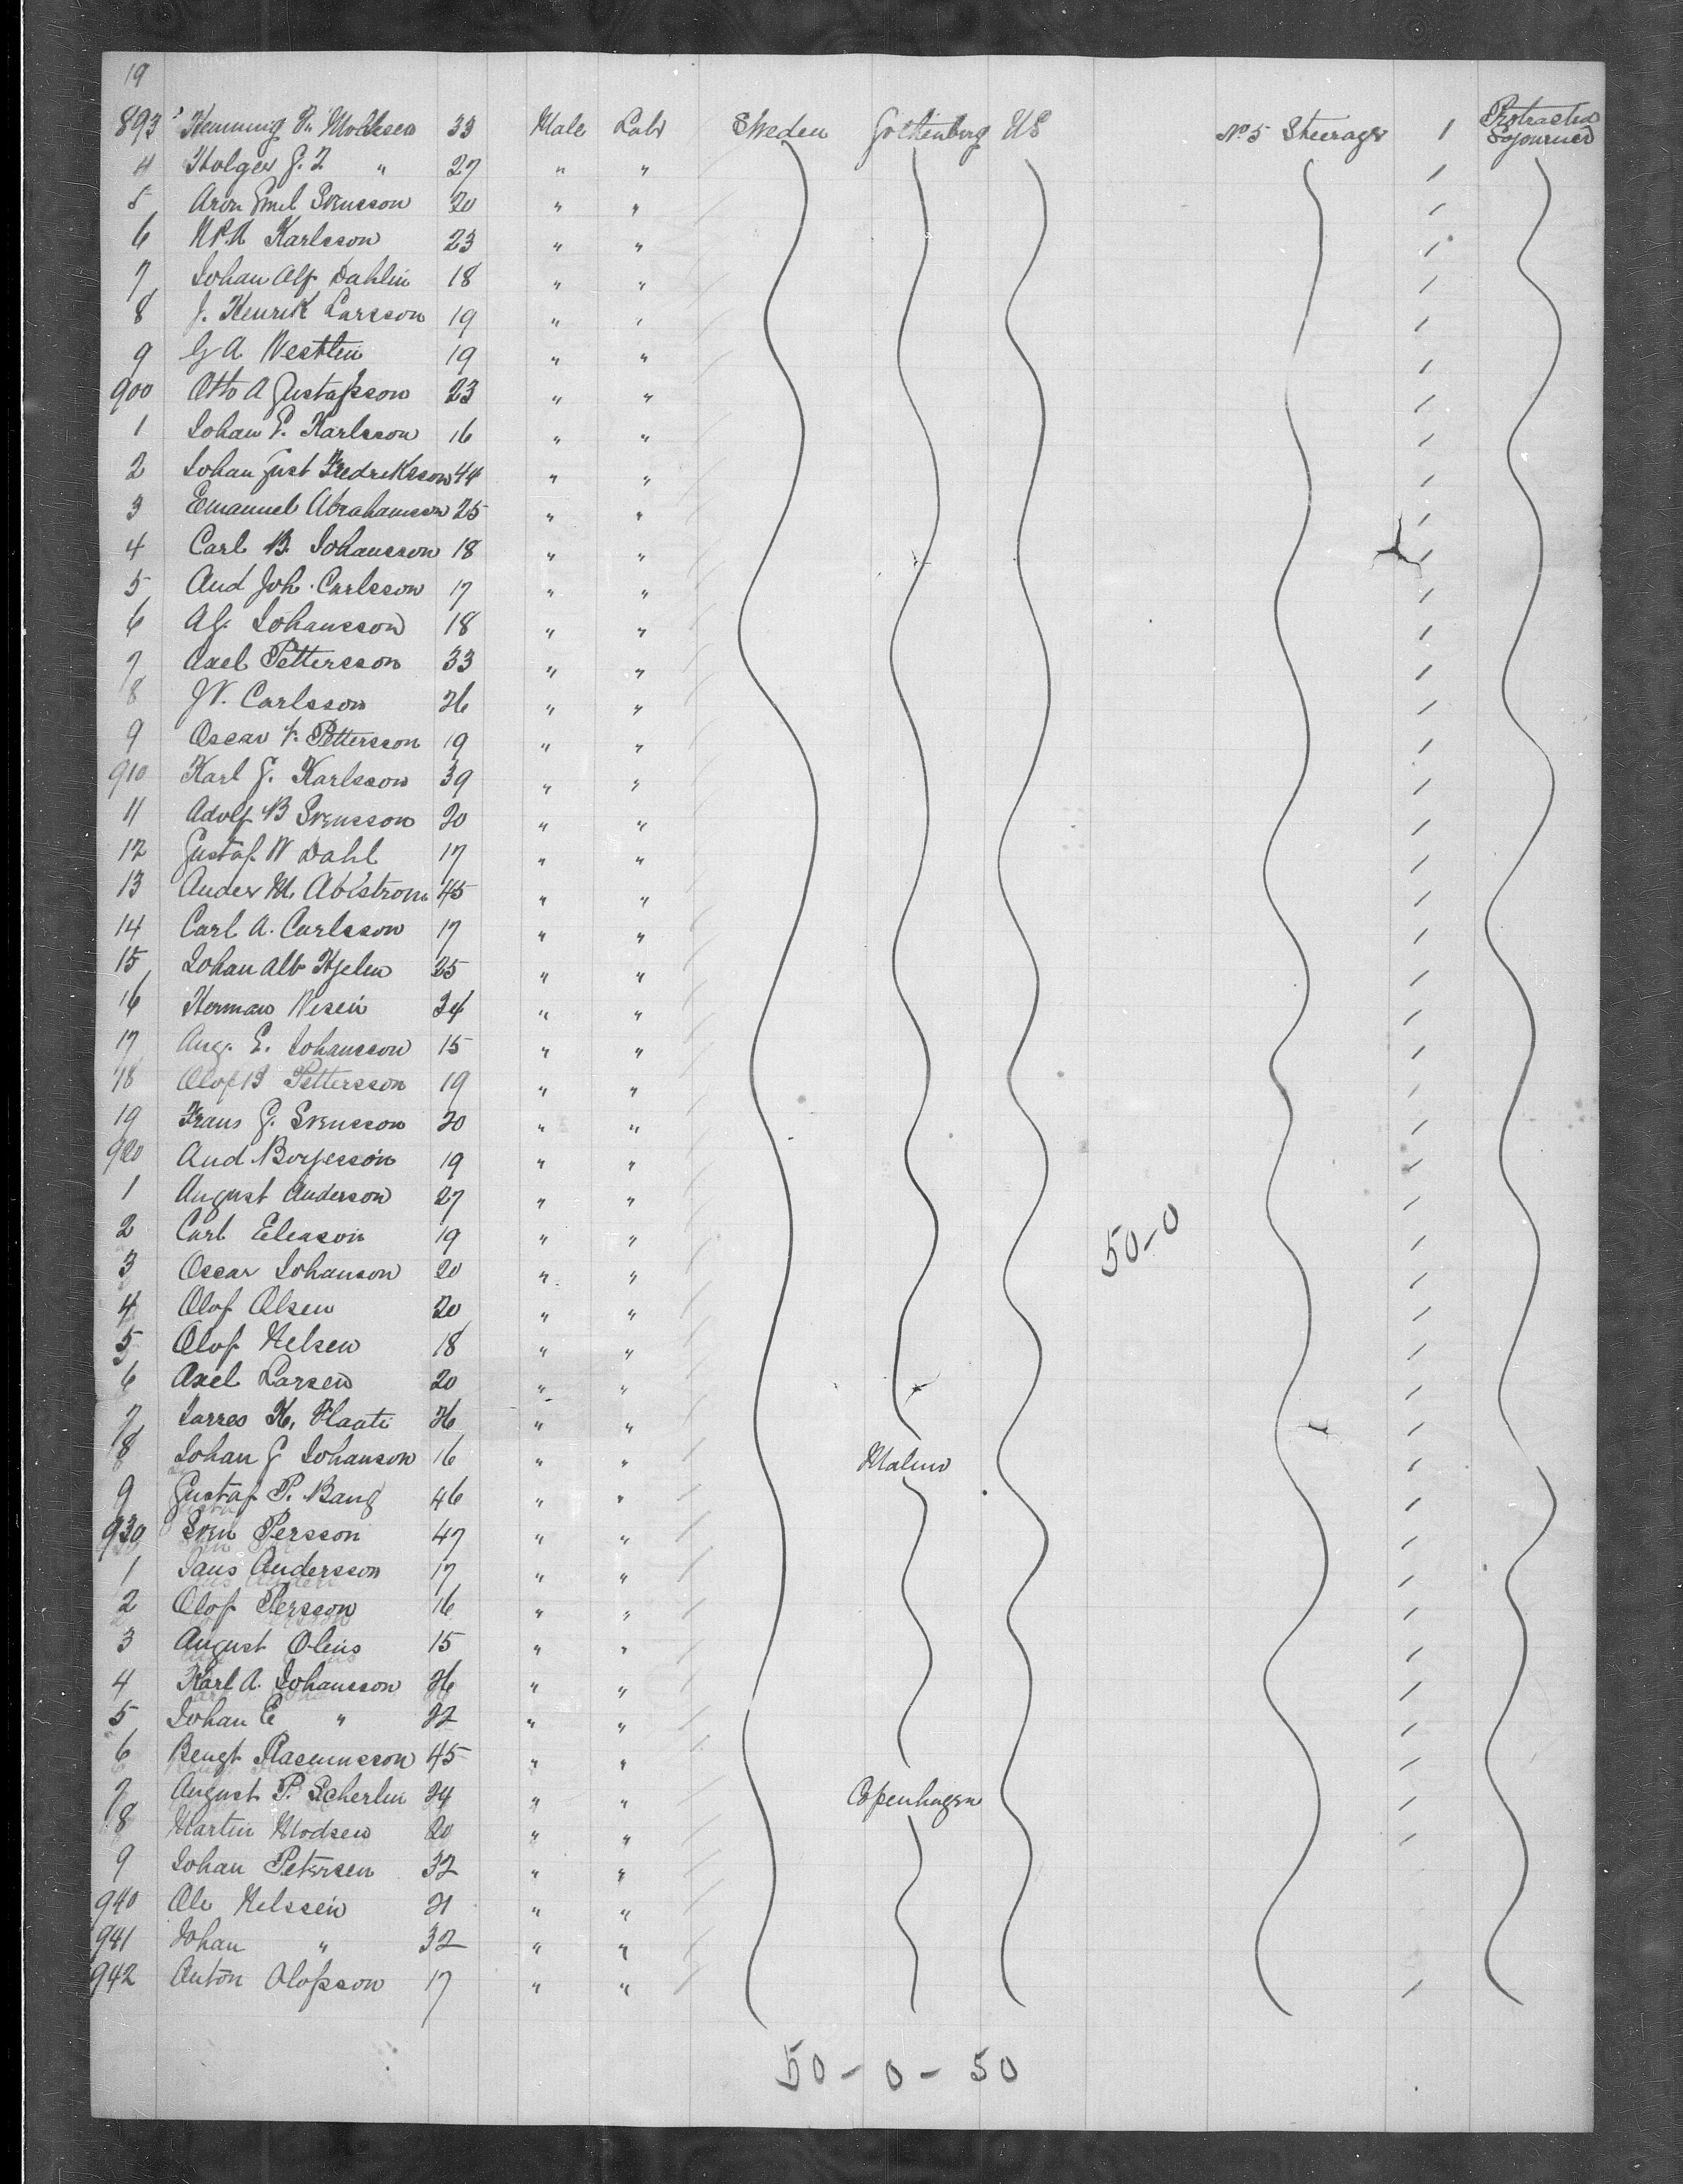 19
893 Henning V. Moldesen 33 Male Labr Sweden Gothenborg US No. 5 Steerage 1 Protracted Sojourner
4 Holger G. T " 27 " "
5 Aron Emil Svensson 20 " "
6 N.P.A Karlsson 23 " "
7 Johan Alf Dahlin 18 " "
8 J. Henrik Larsson 19 " "
9 G A Westlin 19 " "
900 Otto A Gustafsson 23 " "
1 Johan E. Karlsson 16 " "
2 Johan Gust Fredriksson 44 " "
3 Emanuel Abrahamsson 25 " "
4 Carl B. Johansson 18 " "
5 And Joh. Carlsson 17 " "
6 A G. Johansson 18 " "
7 Axel Pettersson 33 " "
8 J V. Carlsson 26 " "
9 Oscar F. Pettersson 19 " "
910 Karl G. Karlsson 39 " "
11 Adolf B Svensson 20 " "
12 Gustaf W Dahl 17 " "
13 Ander M. 45 " "
14 Carl A. Carlsson 17 " "
15 Johan Alb Hjelm 25 " "
16 Herman Wisen 34 " "
17 Aug. E. Johansson 15 " "
18 Olof B Pettersson 19 " "
19 Frans G. Svensson 20 " "
920 And Borjesson 19 " "
1 August Anderson 27 " "
2 Carl Eleason 19 " "
50-0
3 Oscar Johanson 20 " "
4 Olof Olsen 20 " "
5 Olof Nelsen 18 " "
6 Axel Larsen 20 " "
7 26 " "
8 Johan G Johanson 16 " " Malmo
9 Gustaf P. Bang 46 " "
930 Sven Persson 47 " "
1 Jans Andersson 17 " "
2 Olof Persson 16 " "
3 August Olins 15 " "
4 Karl A. Johansson 26 " "
5 Johan E " 22 " "
6 Bengt Rasmusson 45 " "
7 August P. Scherlin 24 " " Copenhagen
8 Martin Modsen 20 " "
9 Johan Petersen 32 " "
940 Ole Nelssen 21 " "
941 Johan " 32 " "
942 Anton Olofsson 17 " "
50-0-50